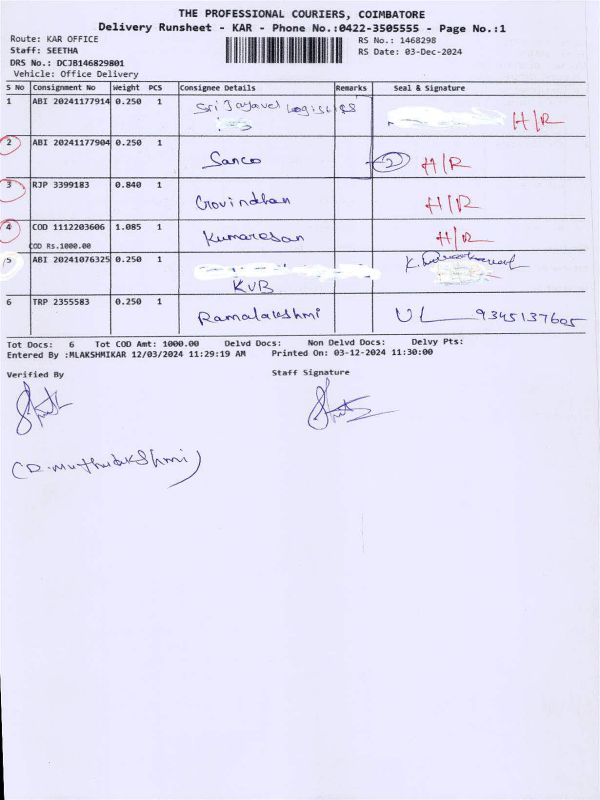 THE PROFESSIONAL COURIERS, COIMBATORE
Delivery Runsheet - KAR - Phone No.:0422-3505555 - Page No.:1
Route: KAR OFFICE
RS No.: 1468298
Staff: SEETHA
RS Date: 03-Dec-2024
DRS No.: DCJB146829801
Vehicle: Office Delivery
S No Consignment No Weight PCS Consignee Details Remarks Seal & Signature
1 ABI 20241177914 0.250 1 Sri Jayavel Logistics H/R
2 ABI 20241177904 0.250 1 Sanco 2 H/R
3 RJP 3399183 0.840 1 Govindhan H/R
4 COD 1112203606 1.085 1 Kumaresan H/R
COD Rs.1000.00
5 ABI 20241076325 0.250 1 KVB K.
6 TRP 2355583 0.250 1 Ramalakshmi UL 9345137605
Tot Docs: 6 Tot COD Amt: 1000.00 Delvd Docs: Non Delvd Docs: Delvy Pts:
Entered By :MLAKSHMIKAR 12/03/2024 11:29:19 AM Printed On: 03-12-2024 11:30:00
Verified By Staff Signature
(R. Muthulakshmi)